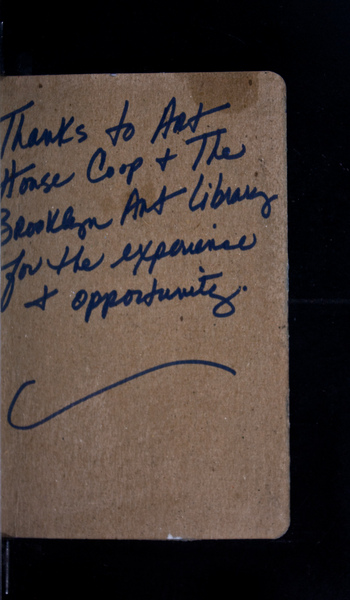 Thanks to Art
House Coop + The
Brooklyn Art Library
for the experience
+ opportunity.